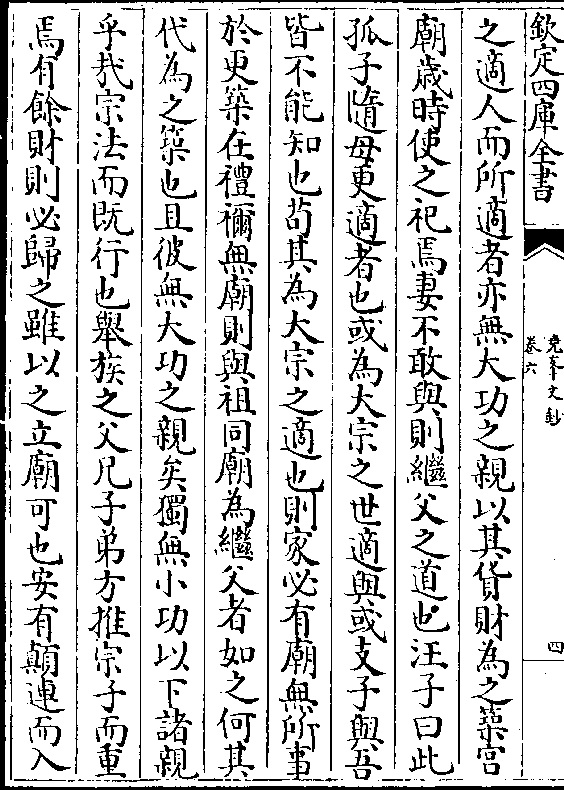 欽定四庫全書
堯峯文鈔
卷六
四
之適人而所適者亦無大功之親以其貨財為之築宫
廟歲時使之祀焉妻不敢與則繼父之道也汪子曰此
孤子隨母更適者也或為大宗之世適與或支子與吾
皆不能知也茍其為大宗之適也則家必有廟無所事
於更築在禮禰無廟則與祖同廟為繼父者如之何其
代為之築也且彼無大功之親矣獨無小功以下諸親
乎㦲宗法而既行也舉族之父兄子弟方推宗子而重
焉有餘財則必歸之雖以之立廟可也安有顛連而入